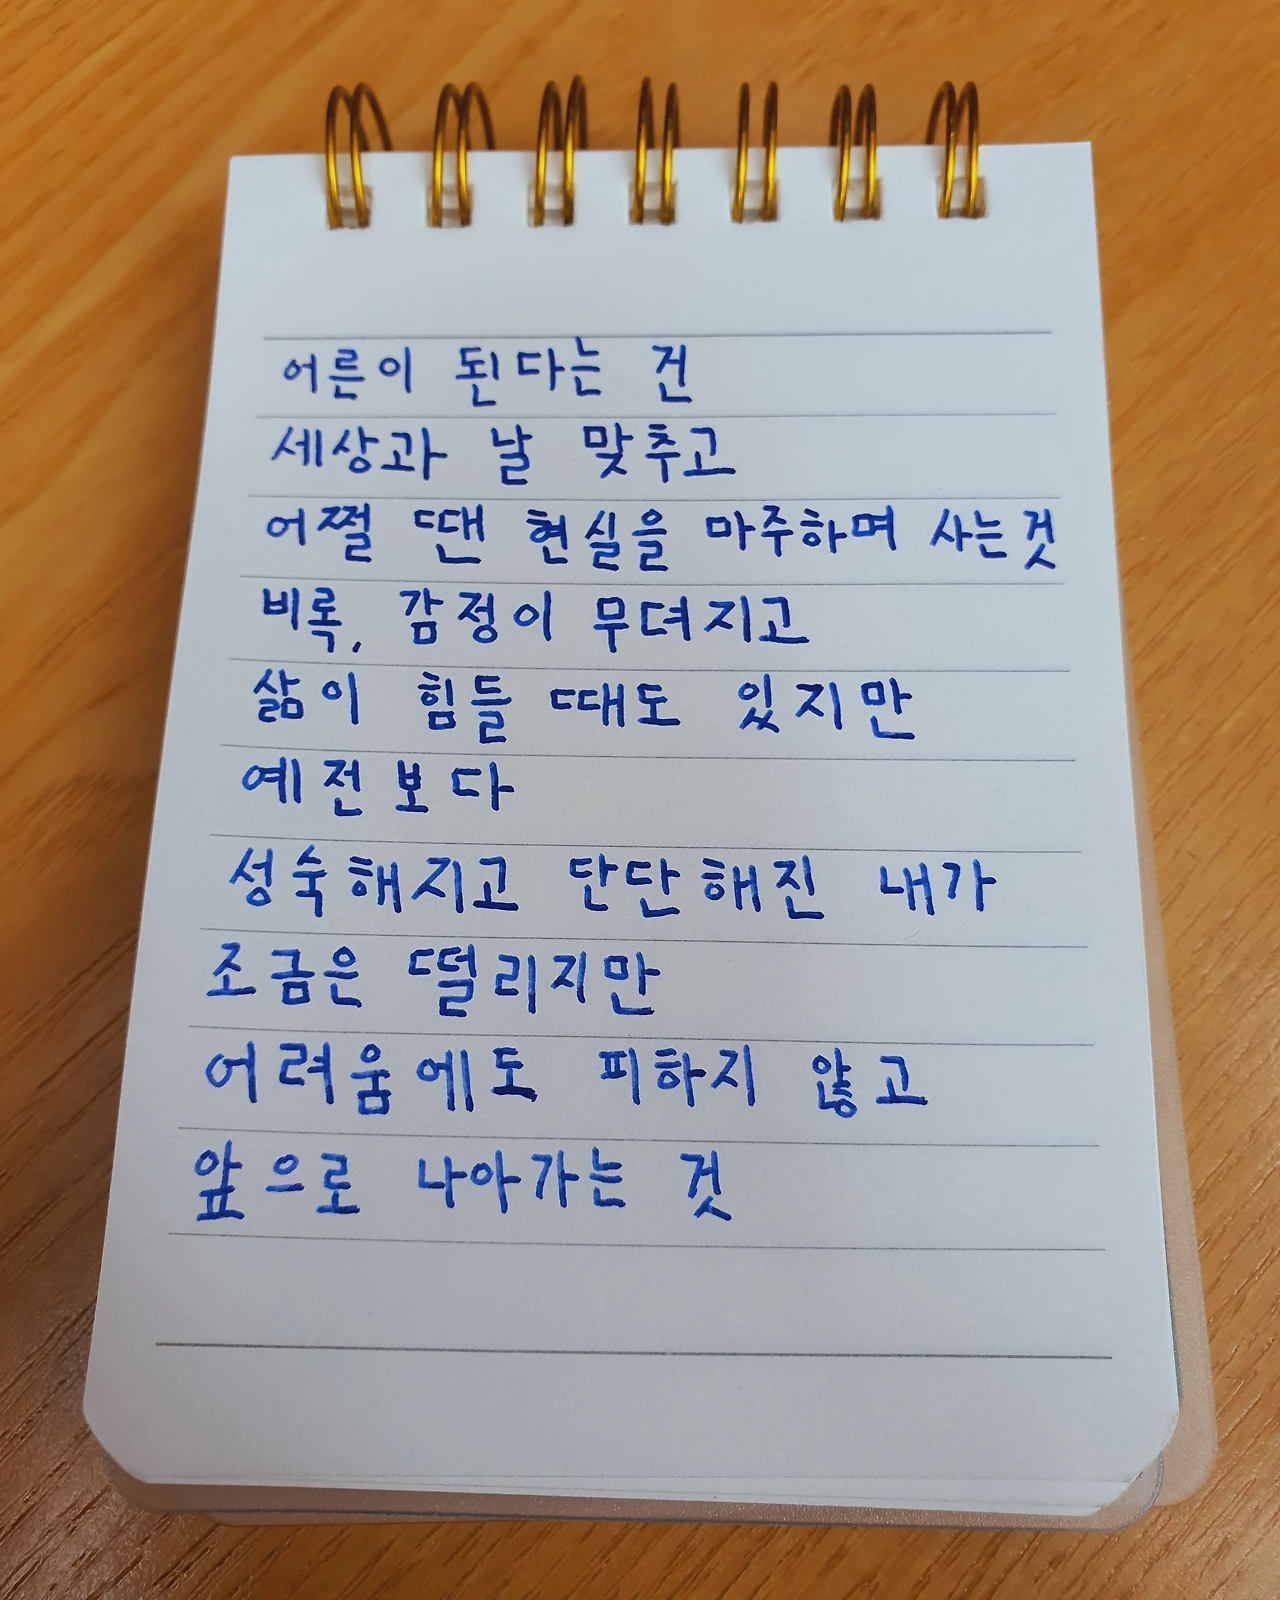 어른이 된다는 건
세상과 날 맞추고
어쩔 땐 현실을 마주하며 사는것
비록, 감정이 무뎌지고
삶이 힘들 때도 있지만
예전보다
성숙해지고 단단해진 내가
조금은 떨리지만
어려움에도 피하지 않고
앞으로 나아가는 것